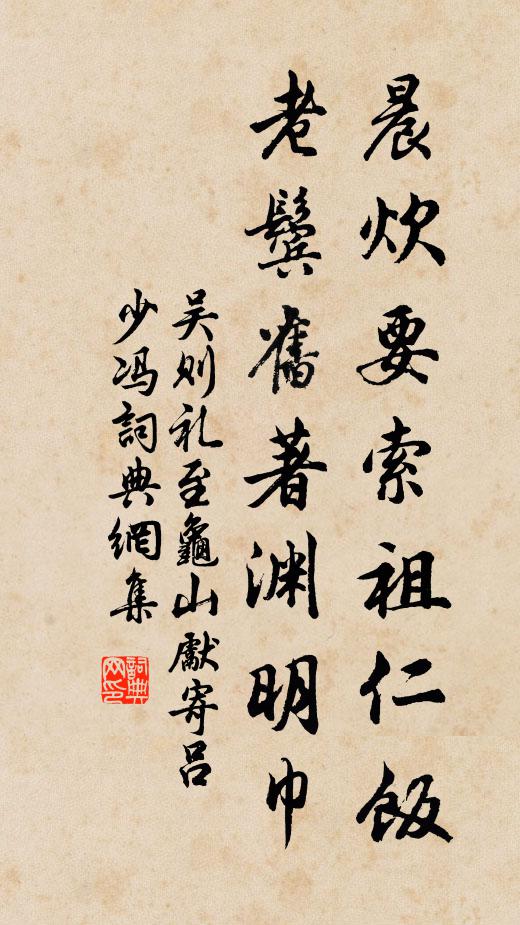 晨炊要索祖仁飯
老鬢舊著渊明巾
吴则礼至龜山獻寄吕
少冯詞典網集
詞典网印